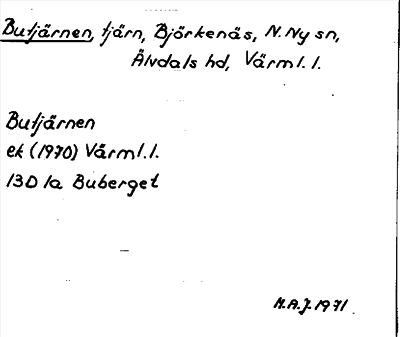 Butjärnen, tjärn, Björkenäs, N. Ny sn,
Älvdals hd, Värml. l.
Butjärnen
ek (1970) Värml. l.
13D 1a Buberget
M.A.J. 1971